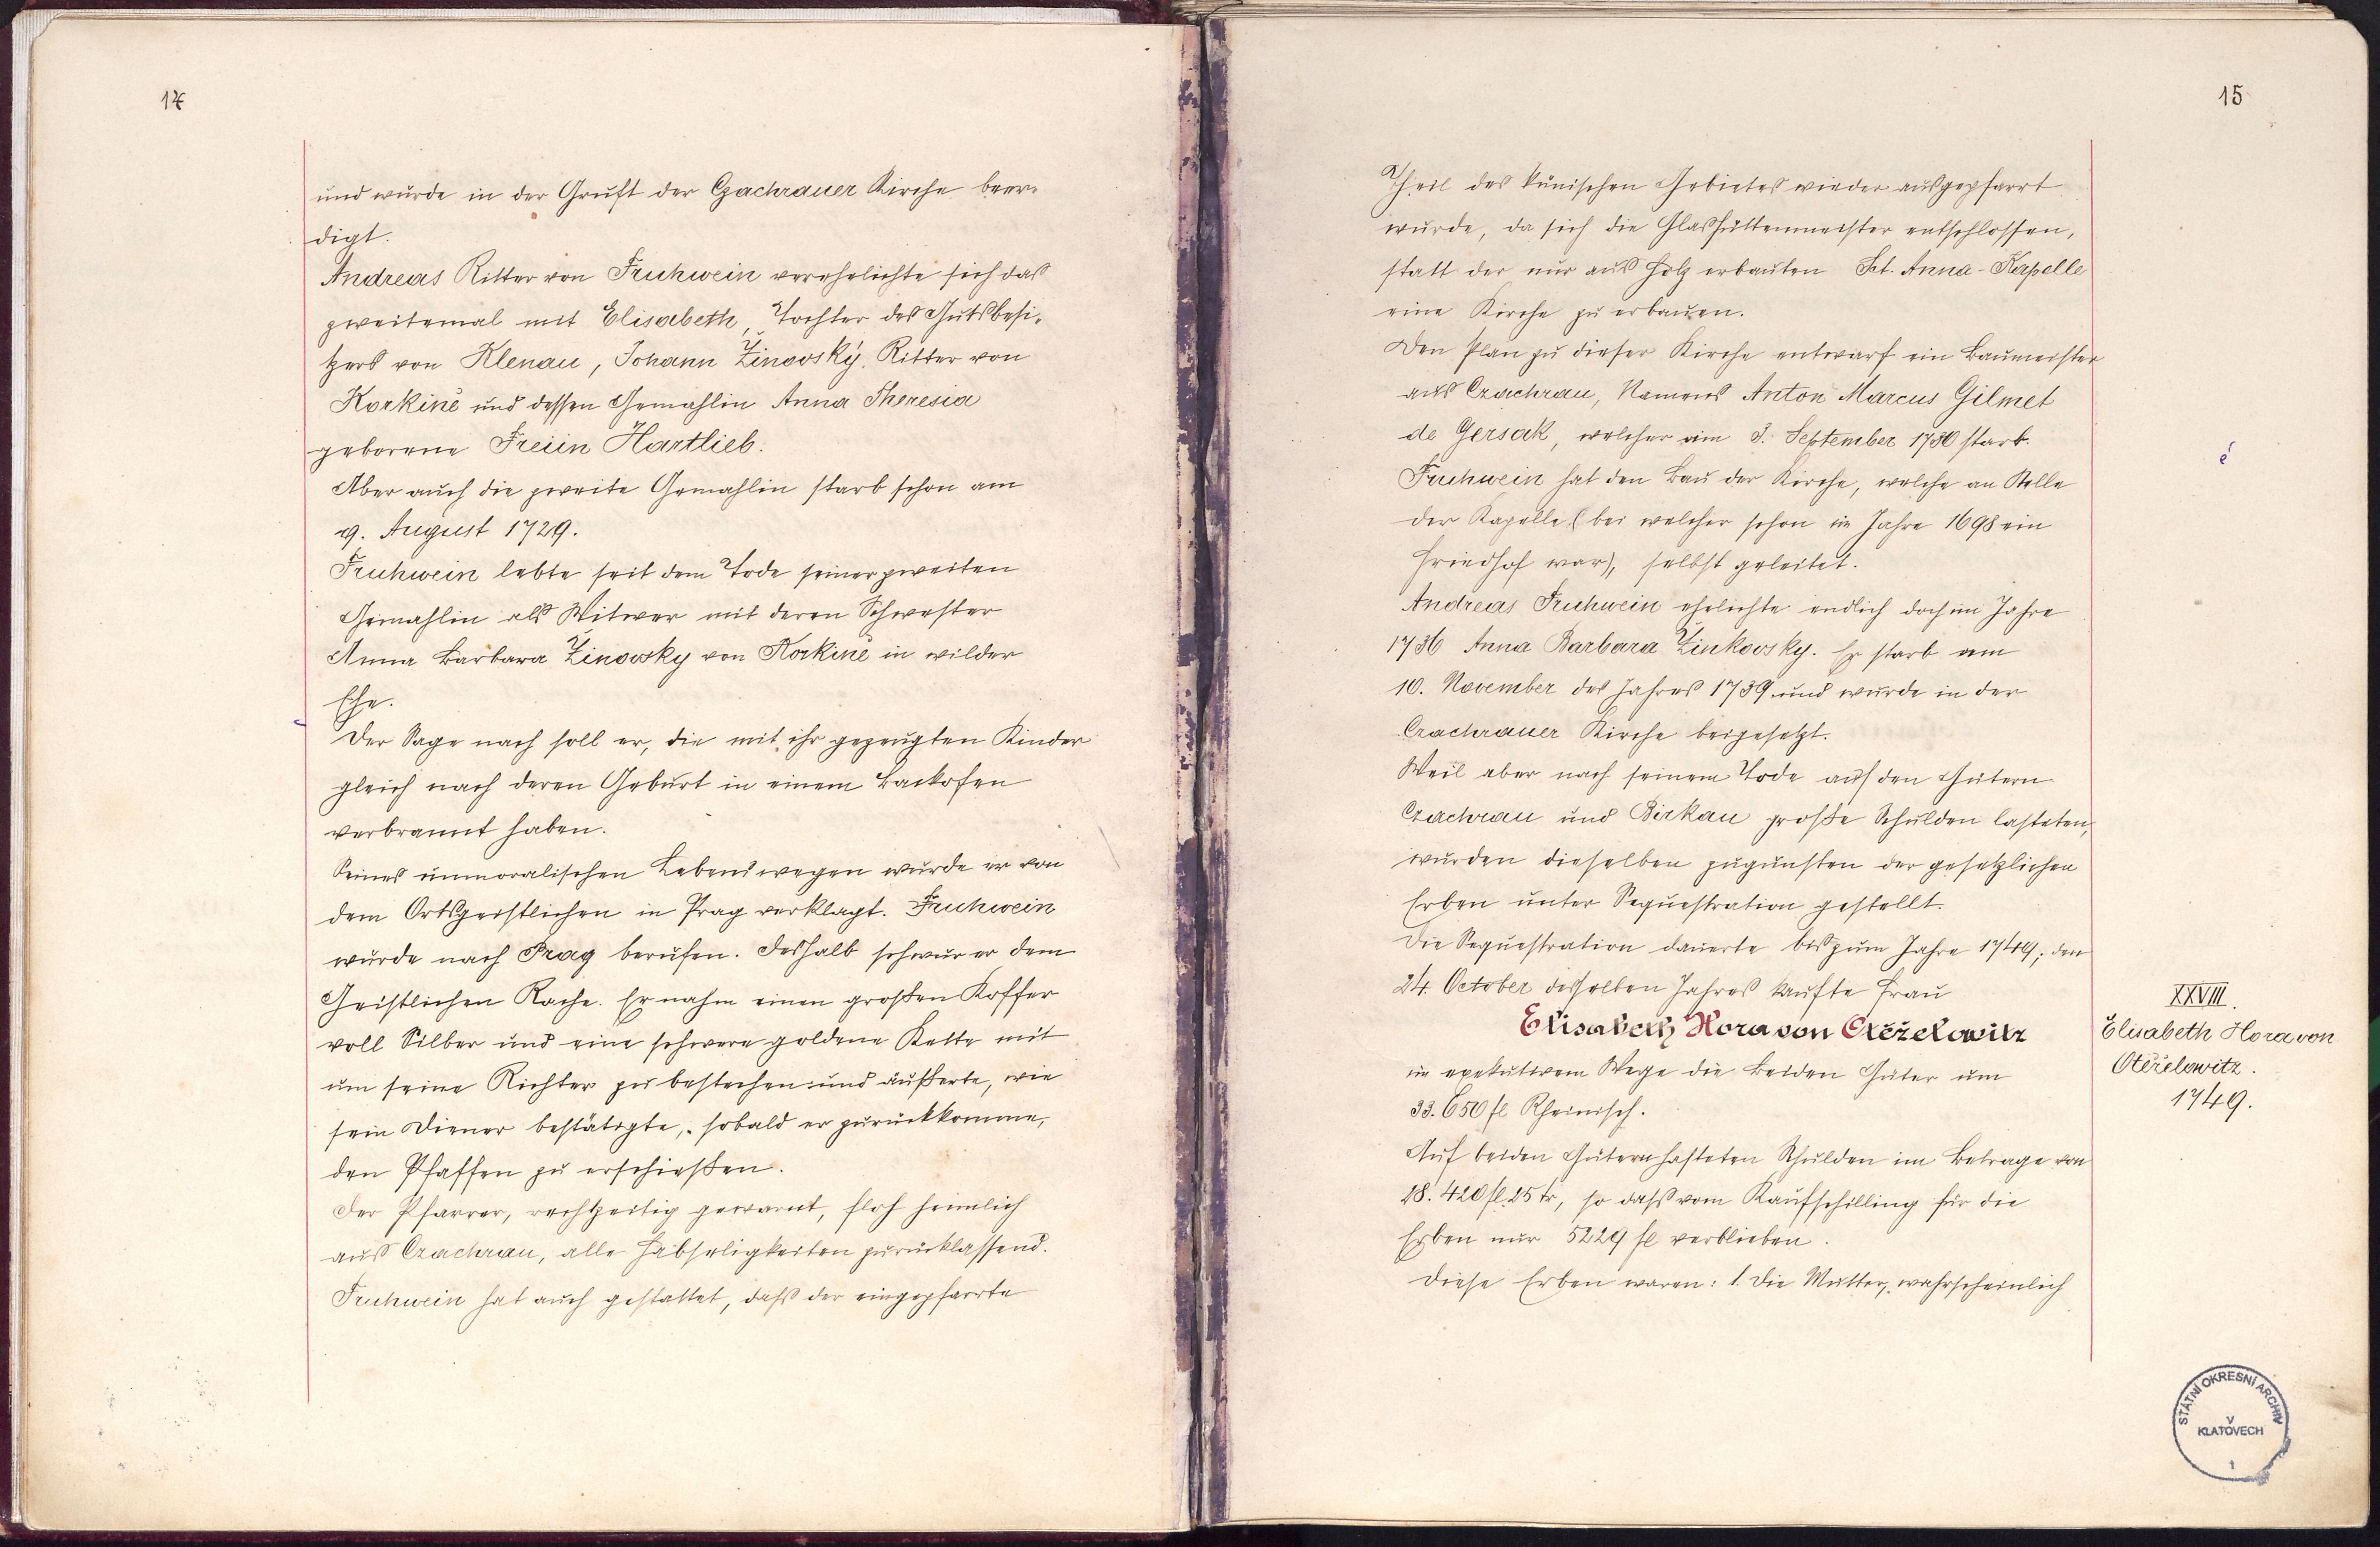 14
und wurde in der Gruft der Czachrauer Kirche beer-
digt.
Andreas Ritter von Fruhwein verehelichte sich das
zweitemal mit Elisabeth, Tochter des Gutsbesi-
tzers von Klenau, Johann Žinovský, Ritter von
Korkině und dessen Gemahlin Anna Theresia
geborene Freiin Hartlieb.
Aber auch die zweite Gemahlin starb schon am
9. August 1729.
Fruhwein lebte seit dem Tode seiner zweiten
Gemahlin als Witwer mit deren Schwester
Anna Barbara Žinovsky von Korkině in wilder
Ehe.
Der Sage nach soll er, die mit ihr gezeugten Kinder
gleich nach deren Geburt in einem Backofen
verbrannt haben.
Seines unmoralischen Lebens wegen wurde er von
dem Ortsgeistlichen in Prag verklagt. Fruhwein
wurde nach Prag berufen. Deshalb schwur er dem
Geistlichen Rache. Er nahm einen großen Koffer
voll Silber und eine schwere goldene Kette mit
um seine Richter zu bestechen und äußerte, wie
sein Diener bestätigte, sobald er zurückkomme,
den Pfaffen zu erschießen.
Der Pfarrer, rechtzeitig gewarnt, floh heimlich
aus Czachrau, alle Habseligkeiten zurücklassend.
Fruhwein hat auch gestattet, daß der eingepfarrte
15
Theil des künischen Gebietes wieder ausgepfarrt
wurde, da sich die Glashüttenmeister entschlossen,
statt der nur aus Holz erbauten Sct. Anna-Kapelle
eine Kirche zu erbauen.
Den Plan zu dieser Kirche entwarf ein Baumeister
aus Czachrau, Namens Anton Marcus Gilmet
de Gersak, welcher am 3. September 1730 starb.
Fruhwein hat den Bau der Kirche, welche an Stelle
der Kapelle (bei welcher schon im Jahre 1698 ein
Friedhof war), selbst geleitet.
Andreas Fruhwein ehelichte endlich doch im Jahre
1736 Anna Barbara Žinkovsky. Er starb am
10. November des Jahres 1739 und wurde in der
Czachrauer Kirche beigesetzt.
Weil aber nach seinem Tode auf den Gütern
Czachrau und Birkau große Schulden lasteten,
wurden dieselben zugunsten der gesetzlichen
Erben unter Sequestration gestellt.
Die Sequestration dauerte bis zum Jahre 1749; den
24. October desselben Jahres kaufte Frau
Elisabeth Hora von Otěželowitz
im exekutivem Wege die beiden Güter um
33.650 fl Rheinisch.
Auf beiden Gütern hafteten Schulden im Betrage von
28.420 fl 25 kr, so daß vom Kaufschilling für die
Erben nur 5229 fl verblieben.
Diese Erben waren: 1. Die Mutter, wahrscheinlich
XXVIII.
Elisabeth Hora von
Otěželowitz.
1749.
STÁTNÍ OKRESNÍ ARCHIV
V
KLATOVECH
1